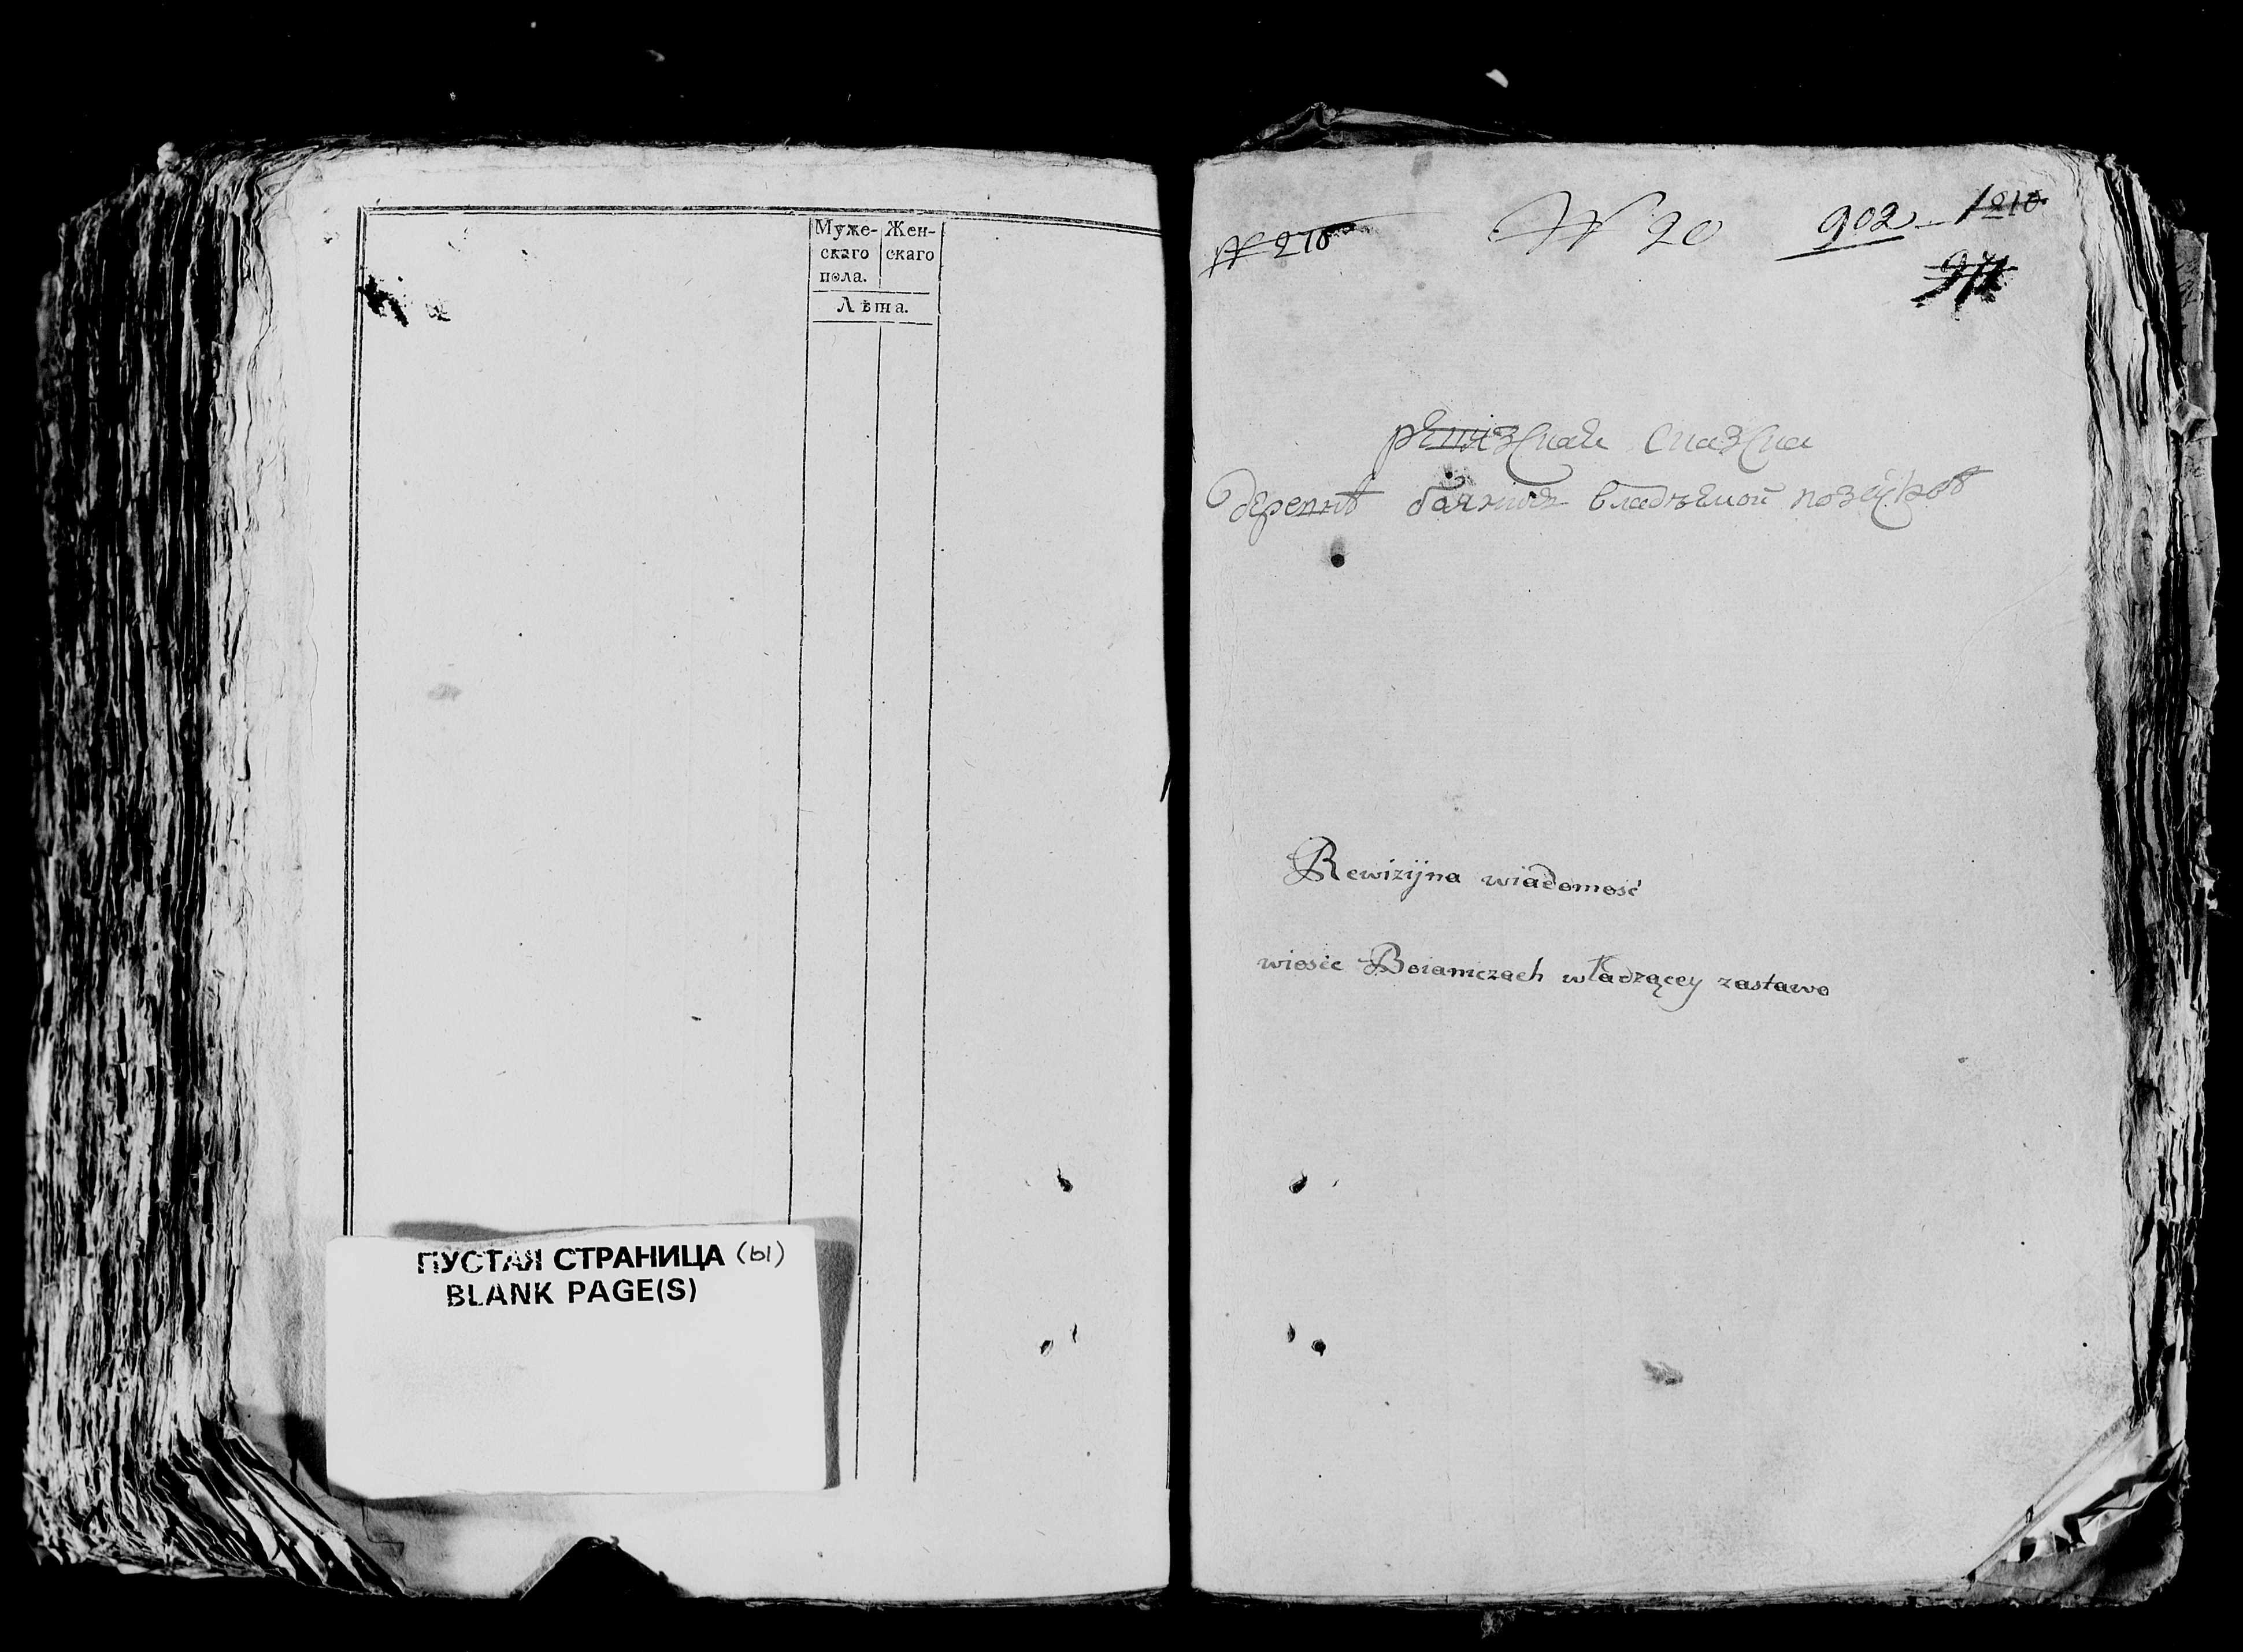 Муже- Жен-
скаго скаго
пола.
Лѣта.
ПУСТАЯ СТРАНИЦА (ы)
BLANK PAGE(S)
№ 210 № 20 902 1210
ревизская сказка
деревнѣ владѣемой
Rewizijna wiadomość
wiosce Boianiczach władzącey zastawo